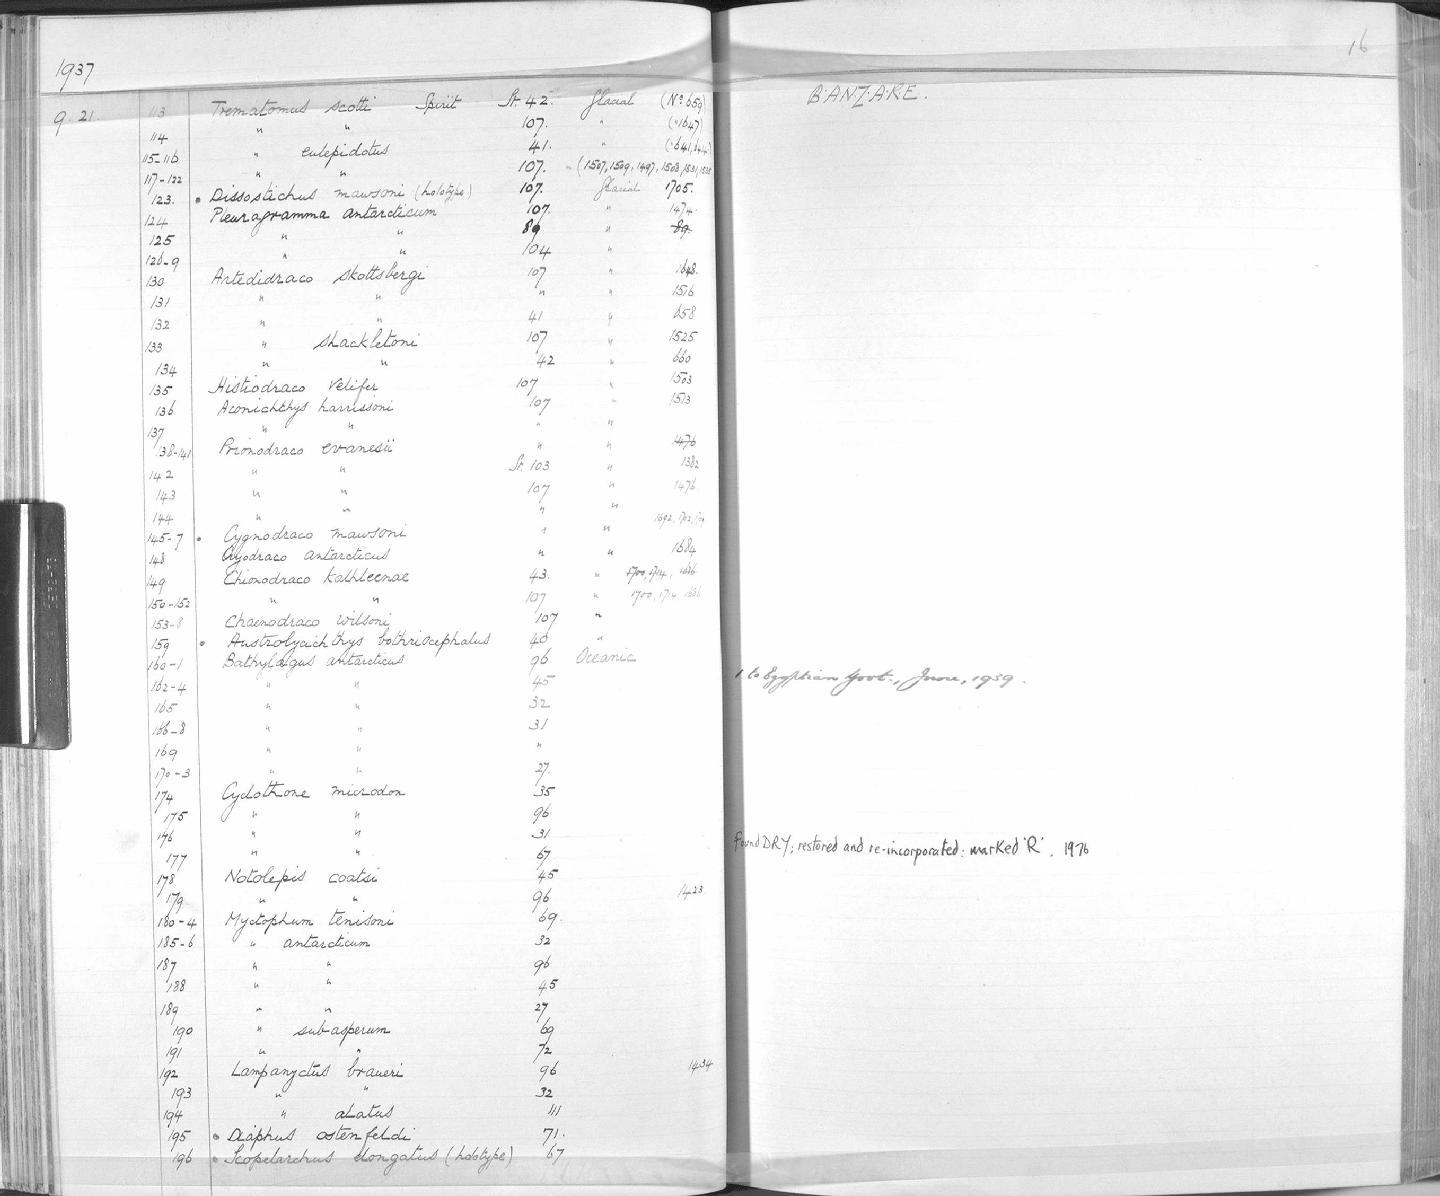 1937
16
B.A.N.Z.A.R.E.
9. 21. 113 Trematomus scotti Spirit St. 42. Glacial (No 659)
114 " " 107. " (" 1647)
115-116 " eulepidotus 41. " (" 641,
117-122 " " 107. " (1507, 1509, 1497, 1508, 1531,
123. • Dissostichus mawsoni (holotype) 107. Glacial 1705.
124 Pleuragramma antarcticum 107. " 1474.
125 " " 89 " 89.
126-9 " " 104 "
130 Artedidraco skottsbergi 107 " 1648.
131 " " " " 1516
132 " " 41 " 658
133 " shackletoni 107 " 1525
134 " " 42 " 660
135 Histiodraco velifer 107 " 1503
136 Aconichthys harrissoni 107 " 1513
137 " " " "
138-141 Prionodraco evansii " " 1476
142 " " St. 103 " 1382
143 " " 107 " 1476
144 " " " "
145-7 • Cygnodraco mawsoni " " 1692, 1702, 1709
148 Cryodraco antarcticus " " 1684
149 Chionodraco kathleenae 43. " 1700, 1714, 1686
150-152 " " 107 " 1700, 1714 1686
153-8 Chaenodraco wilsoni 107 "
159 • Austrolycichthys bothriocephalus 40 "
160-1 Bathylagus antarcticus 96 Oceanic
162-4 " " 45 1 to Egyptian Govt., June, 1939.
165 " " 32
166-8 " " 31
169 " " "
170-3 " " 27.
174 Cyclothone microdon 35
175 " " 96
176 " " 31
177 " " 67 found DRY; restored and re-incorporated: marked 'R'. 1976
178 Notolepis coatsi 45
179 " " 96 1423
180-4 Myctophum tenisoni 69.
185-6 " antarcticum 32
187 " " 96
188 " " 45
189 " " 27
190 " subasperum 69
191 " " 72
192 Lampanyctus braueri 96 1434
193 " " 32
194 " alatus 111
195 • Diaphus ostenfeldi 71.
196 • Scopelarchus elongatus (holotype) 67